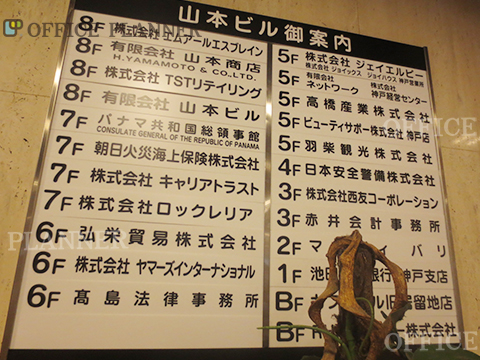 OFFICE PLANNER
山本ビル御案内
8F 株式会社 エムアールエスプレイン
8F 有限会社 山本商店
H.YAMAMOTO & CO.,LTD.
8F 株式会社 TSTリテイリング
8F 有限会社 山本ビル
7F パナマ共和国総領事館
CONSULATE GENERAL OF THE REPUBLIC OF PANAMA
7F 朝日火災海上保険株式会社
7F 株式会社 キャリアトラスト
7F 株式会社ロックレリア
6F 弘栄貿易株式会社
6F 株式会社 ヤマーズインターナショナル
6F 髙島法律事務所
5F 株式会社 ジェイエルビー
株式会社 ジョイックス ジョイハウス 神戸営業所
5F 有限会社 ネットワーク 株式会社 神戸経営センター
5F 高橋産業株式会社
5F ビューティサポー株式会社 神戸店
5F 羽柴観光株式会社
4F 日本安全警備株式会社
3F 株式会社西友コーポレーション
3F 赤井会計事務所
2F マ バリ
1F 池田 銀行 神戸支店
BF 旧居留地店
BF 株式会社
OFFICE
PLANNER
OFFICE